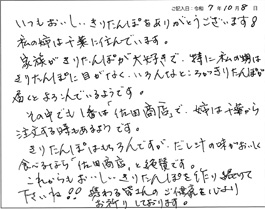 ご記入日：令和 7年 10月 8日
いつもおいしいきりたんぽをありがとうございます!
私の姉は千葉に住んでいます。
家族がきりたんぽが大好きで、特に私の甥は
きりたんぽに目がなく、いろんなところからきりたんぽが
届くとよろこんでいるようです。
その中でも1番は「佐田商店」で、姉は千葉から
注文する時もあるようです。
きりたんぽはもちろんですが、だし汁の味がおいしく
食べるなら「佐田商店」と絶賛です。
これからもおいしいきりたんぽを作り続けて
下さいね!! 携わる皆さんのご健康を心より
お祈りしております。